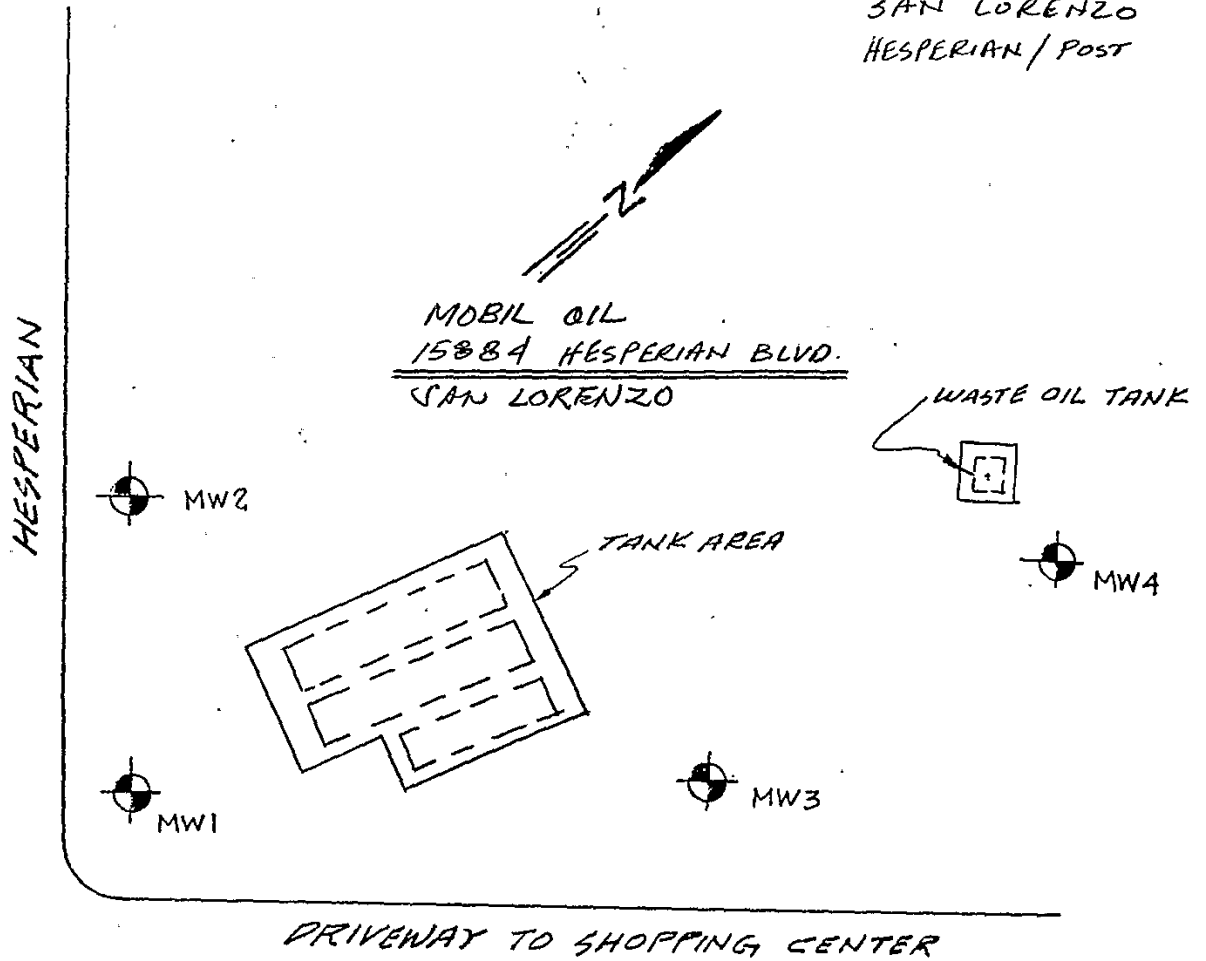 SAN LORENZO
HESPERIAN / POST
N
MOBIL OIL
15884 HESPERIAN BLVD.
SAN LORENZO
HESPERIAN
WASTE OIL TANK
MW2
TANK AREA
MW4
MW3
MW1
DRIVEWAY TO SHOPPING CENTER